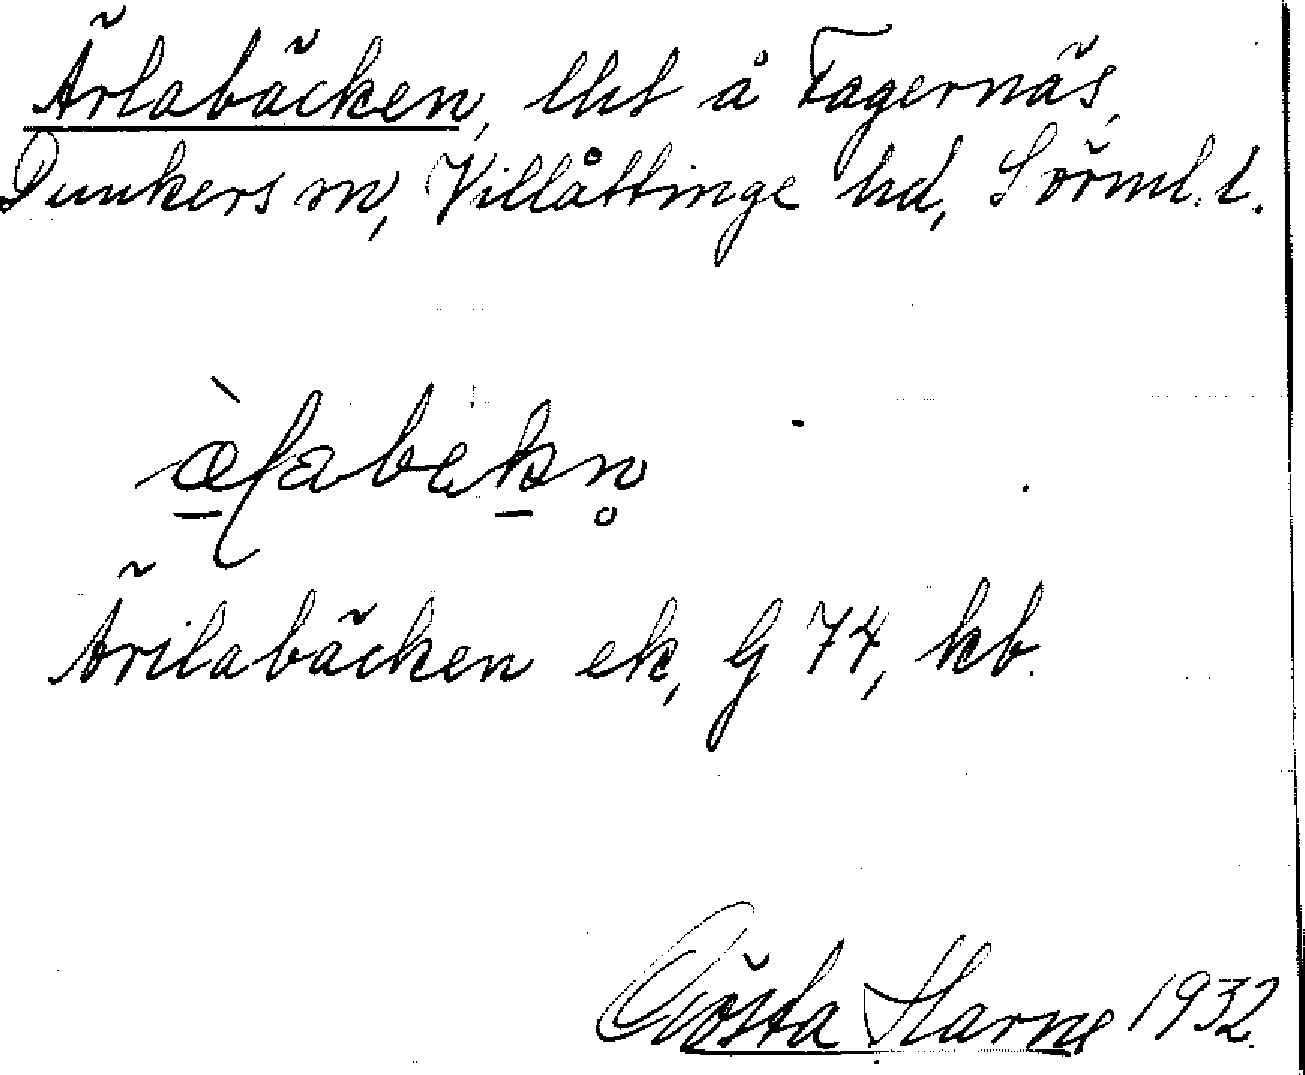 Ärlabäcken, lht å Fagernäs,
Dunkers sn, Villåttinge hd, Sörml. l.
Ärilabäcken ek, G 74, kb.
Gösta Harne 1932.